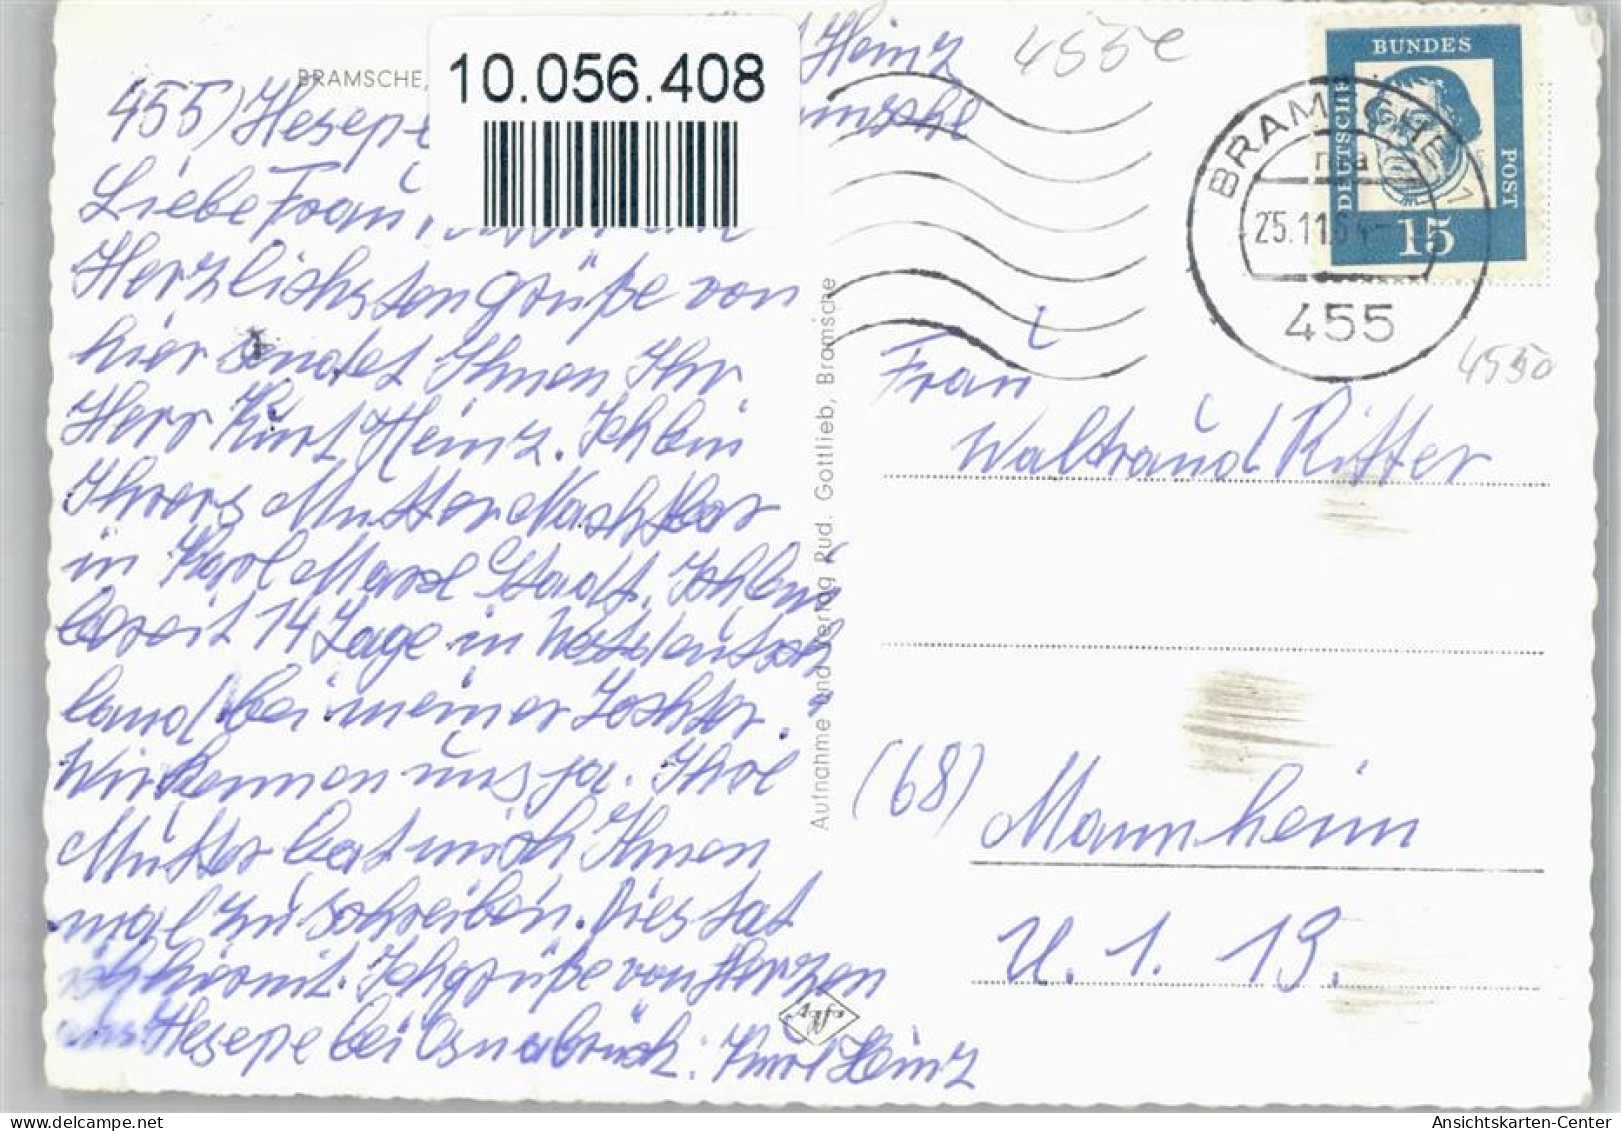 BRAMSCHE,
10.056.408
Heinz
455) Hesepe
Liebe Frau
Herzlichsten grüße von
hier sendet Ihnen Ihr
Herr Kurt Heinz. Ich bin
Ihrers Mutter Nachbar
in Karl Marx Stadt. Ich bin
bereit 14 Tage in Westdeutsch
land bei meiner Tochter.
Wir kennen uns ja. Ihre
Mutter bat mich Ihnen
mal zu schreiben. Dies tat
ich hiermit. Ich grüße von Herzen
aus Hesepe bei Osnabrück. Kurt Heinz
Aufnahme und Verlag Rud. Gottlieb, Bramsche
4550
BUNDES
DEUTSCHE
POST
15
BRAMSCHE 1
25.11.64-
455
4550
Frau
Waltraud Ritter
(68) Mannheim
U. 1. 19.
Ansichtskarten-Center